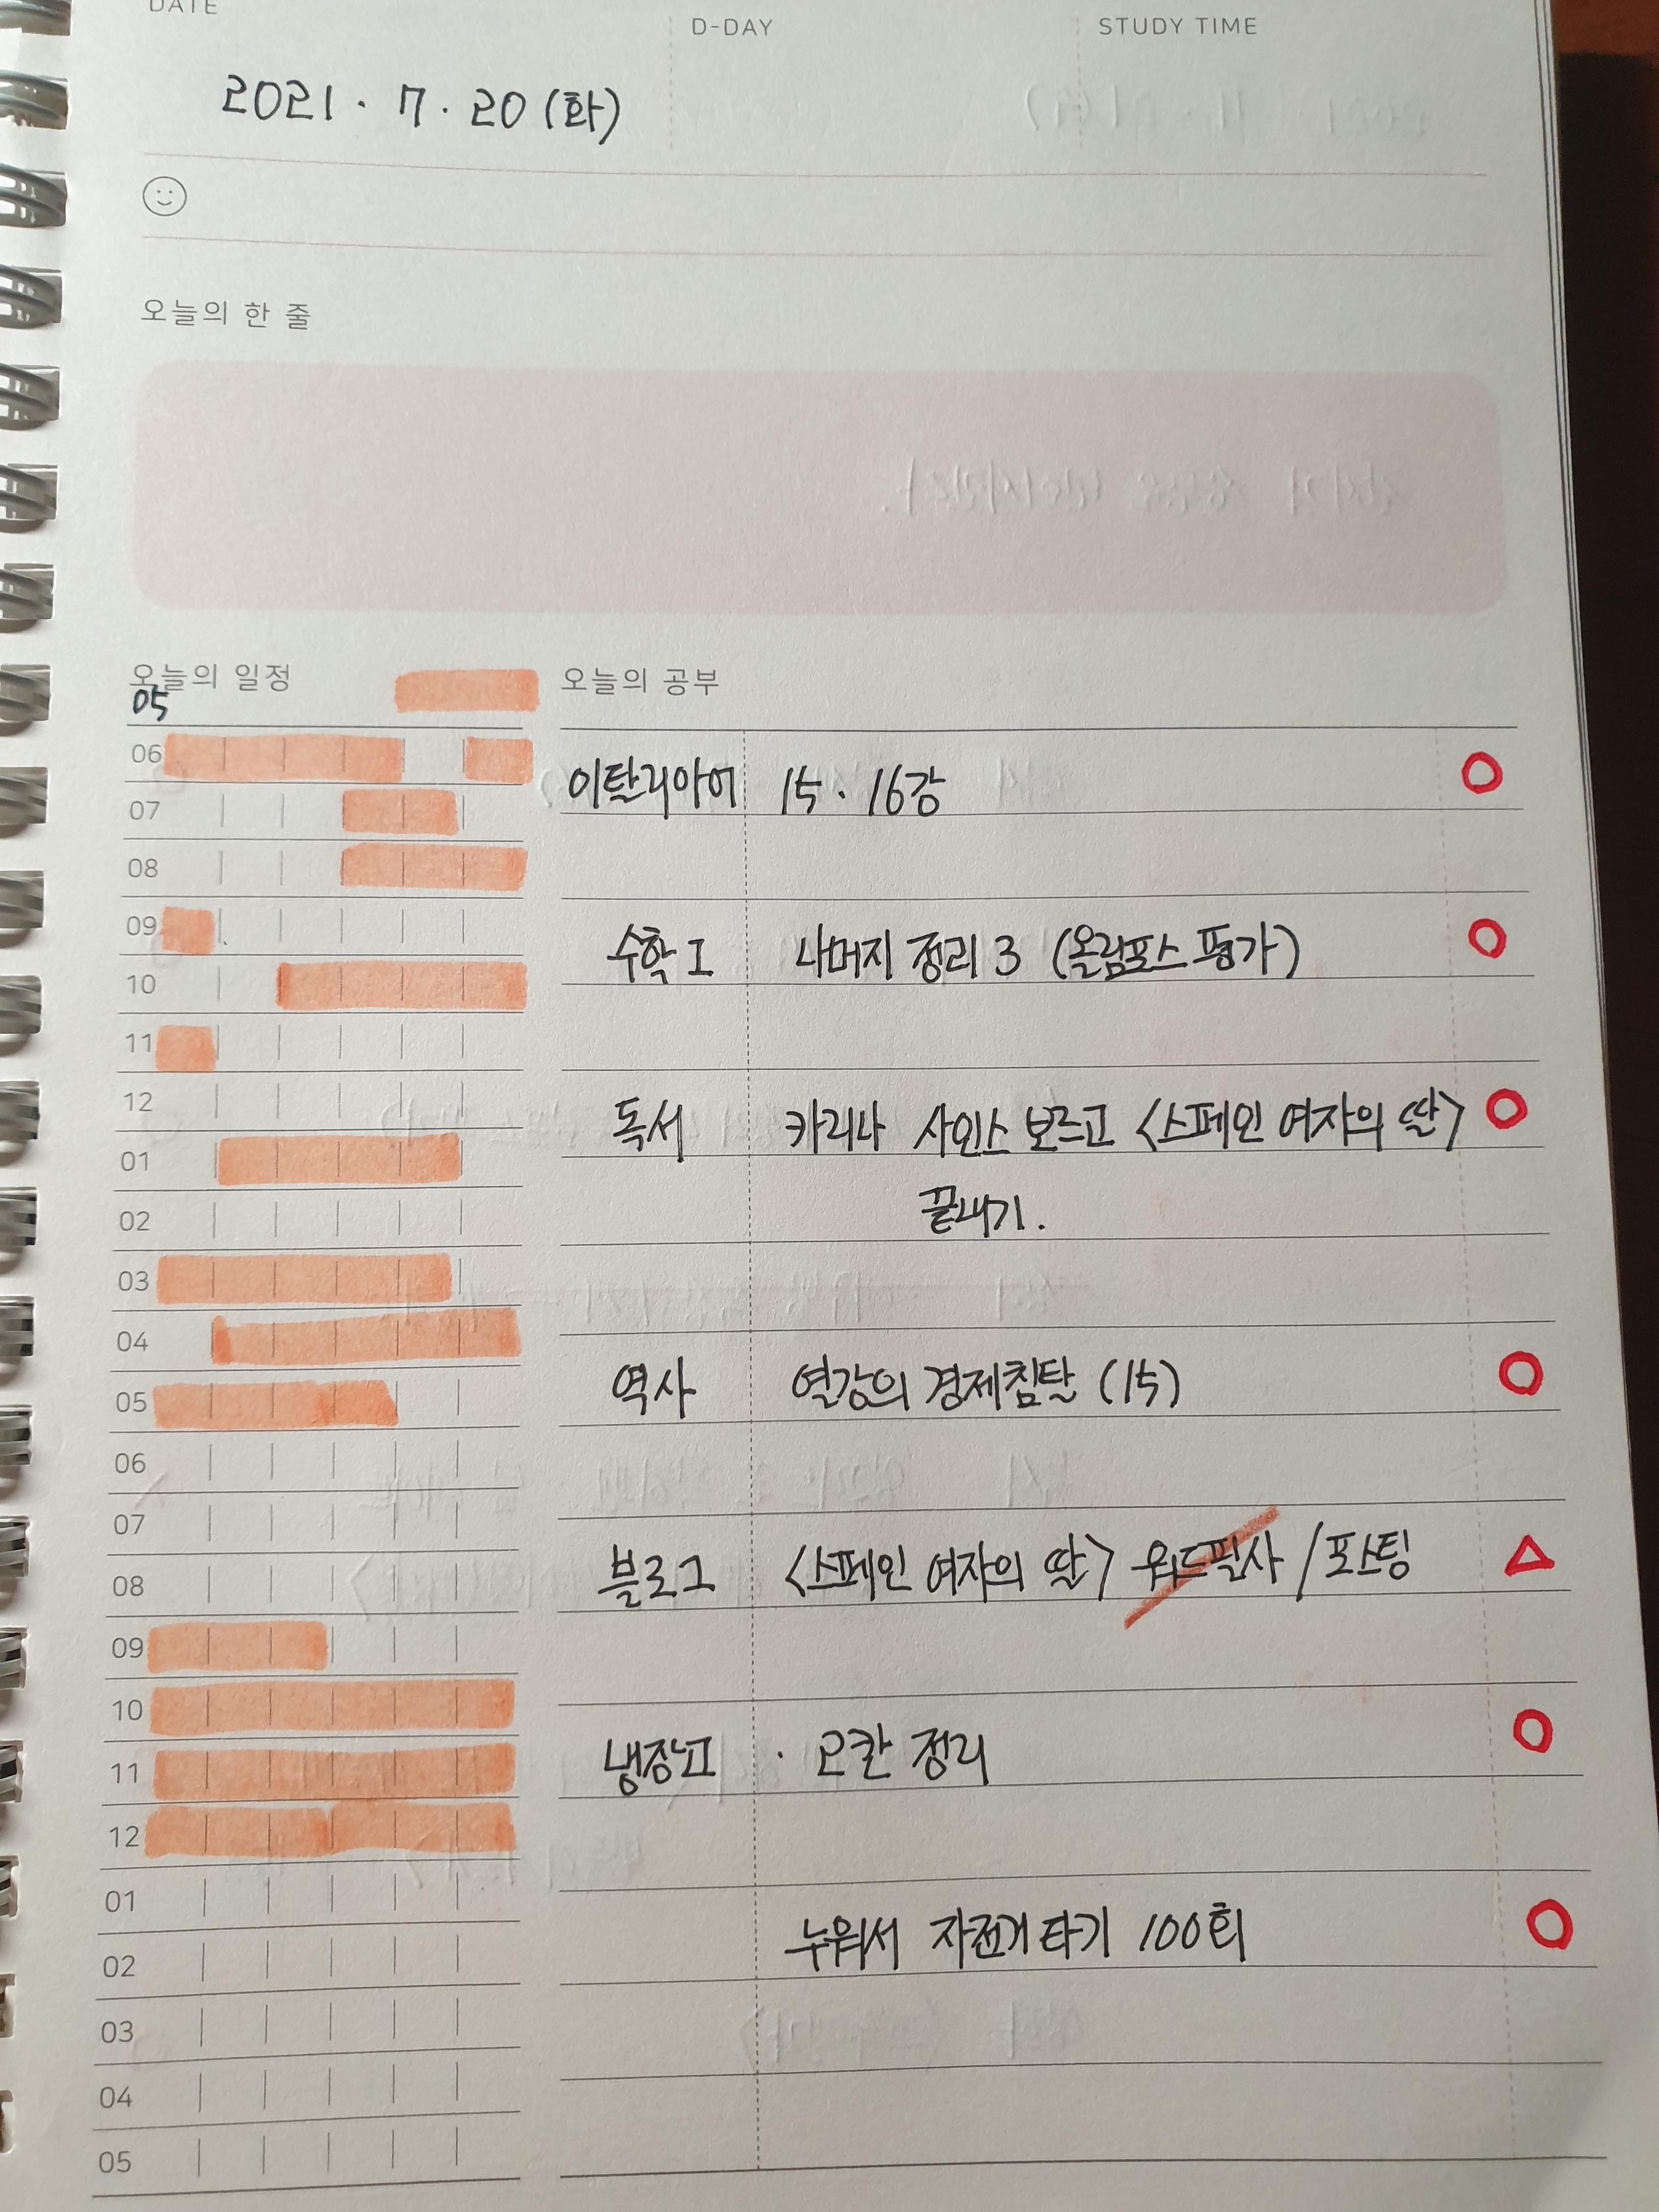 DATE
D-DAY
STUDY TIME
2021 · 7 · 20 (화)
오늘의 한 줄
오늘의 일정
오늘의 공부
05
06
이탈리아어 15 · 16강
07
08
09
수학 I 나머지 정리 3 (올림포스 평가)
10
11
12
독서 카리나 사인스 보르고 <스페인 여자의 딸>
01
02
끝내기.
03
04
05
역사 열강의 경제침탈 (15)
06
07
08
블로그 <스페인 여자의 딸> 워드필사 / 포스팅
09
10
11
냉장고 · 2칸 정리
12
01
02
누워서 자전거 타기 100회
03
04
05